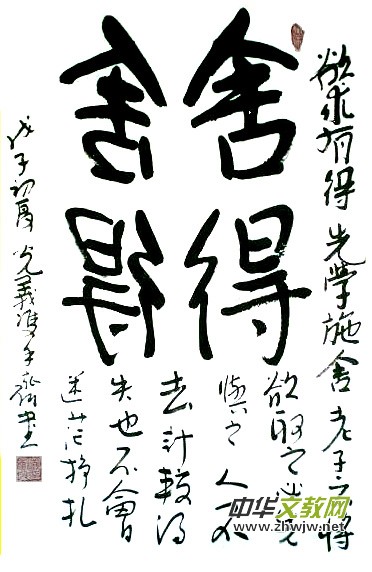 欲求有得 先學施舍 老子云将
舍得
舍得
欲取之必先
與之 人不
去計較得
失也不會
迷茫挣扎
戊子初夏 光義 手 書
中华文教网
www.zhwjw.net